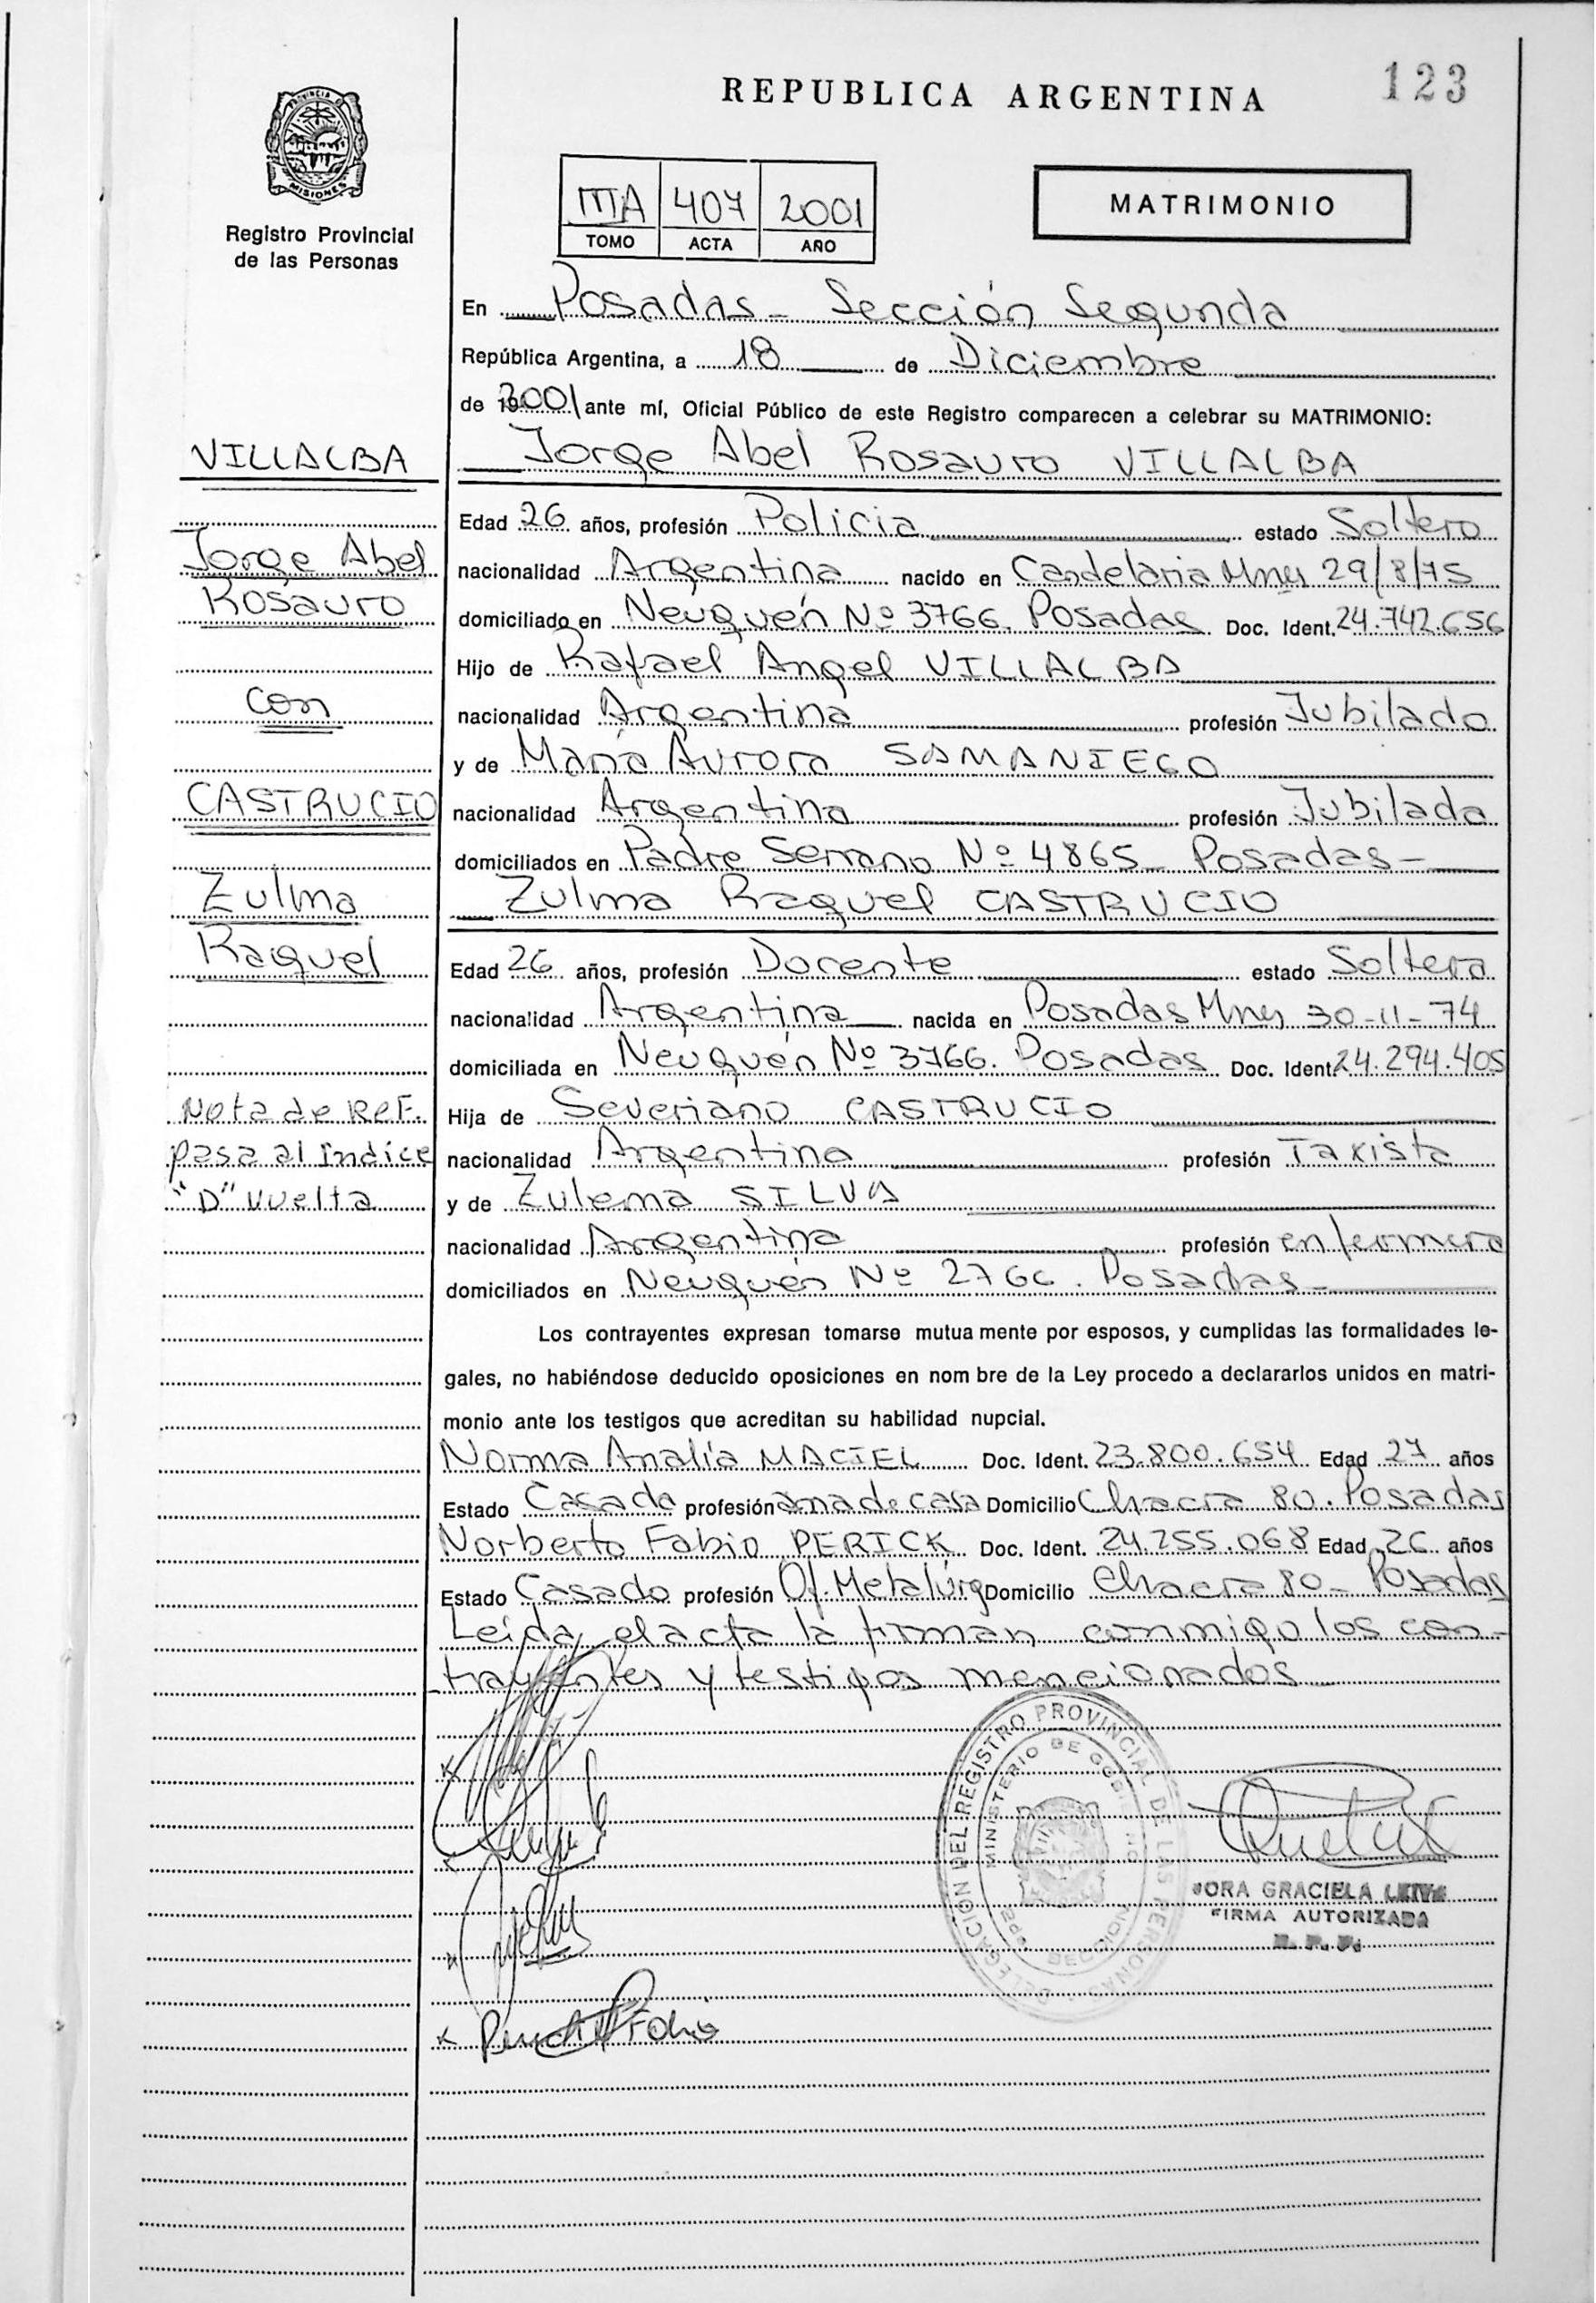 REPUBLICA ARGENTINA
123
PROVINCIA DE
MISIONES
Registro Provincial
de las Personas
IIIA 407 2001
TOMO ACTA AÑO
MATRIMONIO
En Posadas - Sección Segunda
República Argentina, a 18 de Diciembre
de 2001 ante mí, Oficial Público de este Registro comparecen a celebrar su MATRIMONIO:
VILLALBA
Jorge Abel
Rosauro
con
CASTRUCIO
Zulma
Raquel
Nota de Ref.
pasa al índice
"D" vuelta
Jorge Abel Rosauro VILLALBA
Edad 26 años, profesión Policia estado Soltero
nacionalidad Argentina nacido en Candelaria Mnes 29/8/75
domiciliado en Neuquén Nº 3766. Posadas Doc. Ident. 24.742.656
Hijo de Rafael Angel VILLALBA
nacionalidad Argentina profesión Jubilado
y de María Aurora SAMANIEGO
nacionalidad Argentina profesión Jubilada
domiciliados en Padre Serrano Nº 4865 - Posadas -
Zulma Raquel CASTRUCIO
Edad 26 años, profesión Docente estado Soltera
nacionalidad Argentina nacida en Posadas Mnes 30-11-74
domiciliada en Neuquén Nº 3766. Posadas Doc. Ident. 24.294.405
Hija de Severiano CASTRUCIO
nacionalidad Argentina profesión Taxista
y de Zulema SILVA
nacionalidad Argentina profesión enfermera
domiciliados en Neuquén Nº 2766. Posadas -
Los contrayentes expresan tomarse mutua mente por esposos, y cumplidas las formalidades le-
gales, no habiéndose deducido oposiciones en nom bre de la Ley procedo a declararlos unidos en matri-
monio ante los testigos que acreditan su habilidad nupcial.
Norma Analía MACIEL Doc. Ident. 23.800.654 Edad 27 años
Estado Casada profesión ama de casa Domicilio Chacra 80. Posadas
Norberto Fabio PERICK Doc. Ident. 24.255.068 Edad 26 años
Estado Casado profesión Of. Metalúrg Domicilio Chacra 80 - Posadas
Leída el acta la firman conmigo los con-
trayentes y testigos mencionados
DELEGACION DEL REGISTRO PROVINCIAL DE LAS PERSONAS
MINISTERIO DE GOBIERNO
SECCION
GRACIELA
FIRMA AUTORIZADA